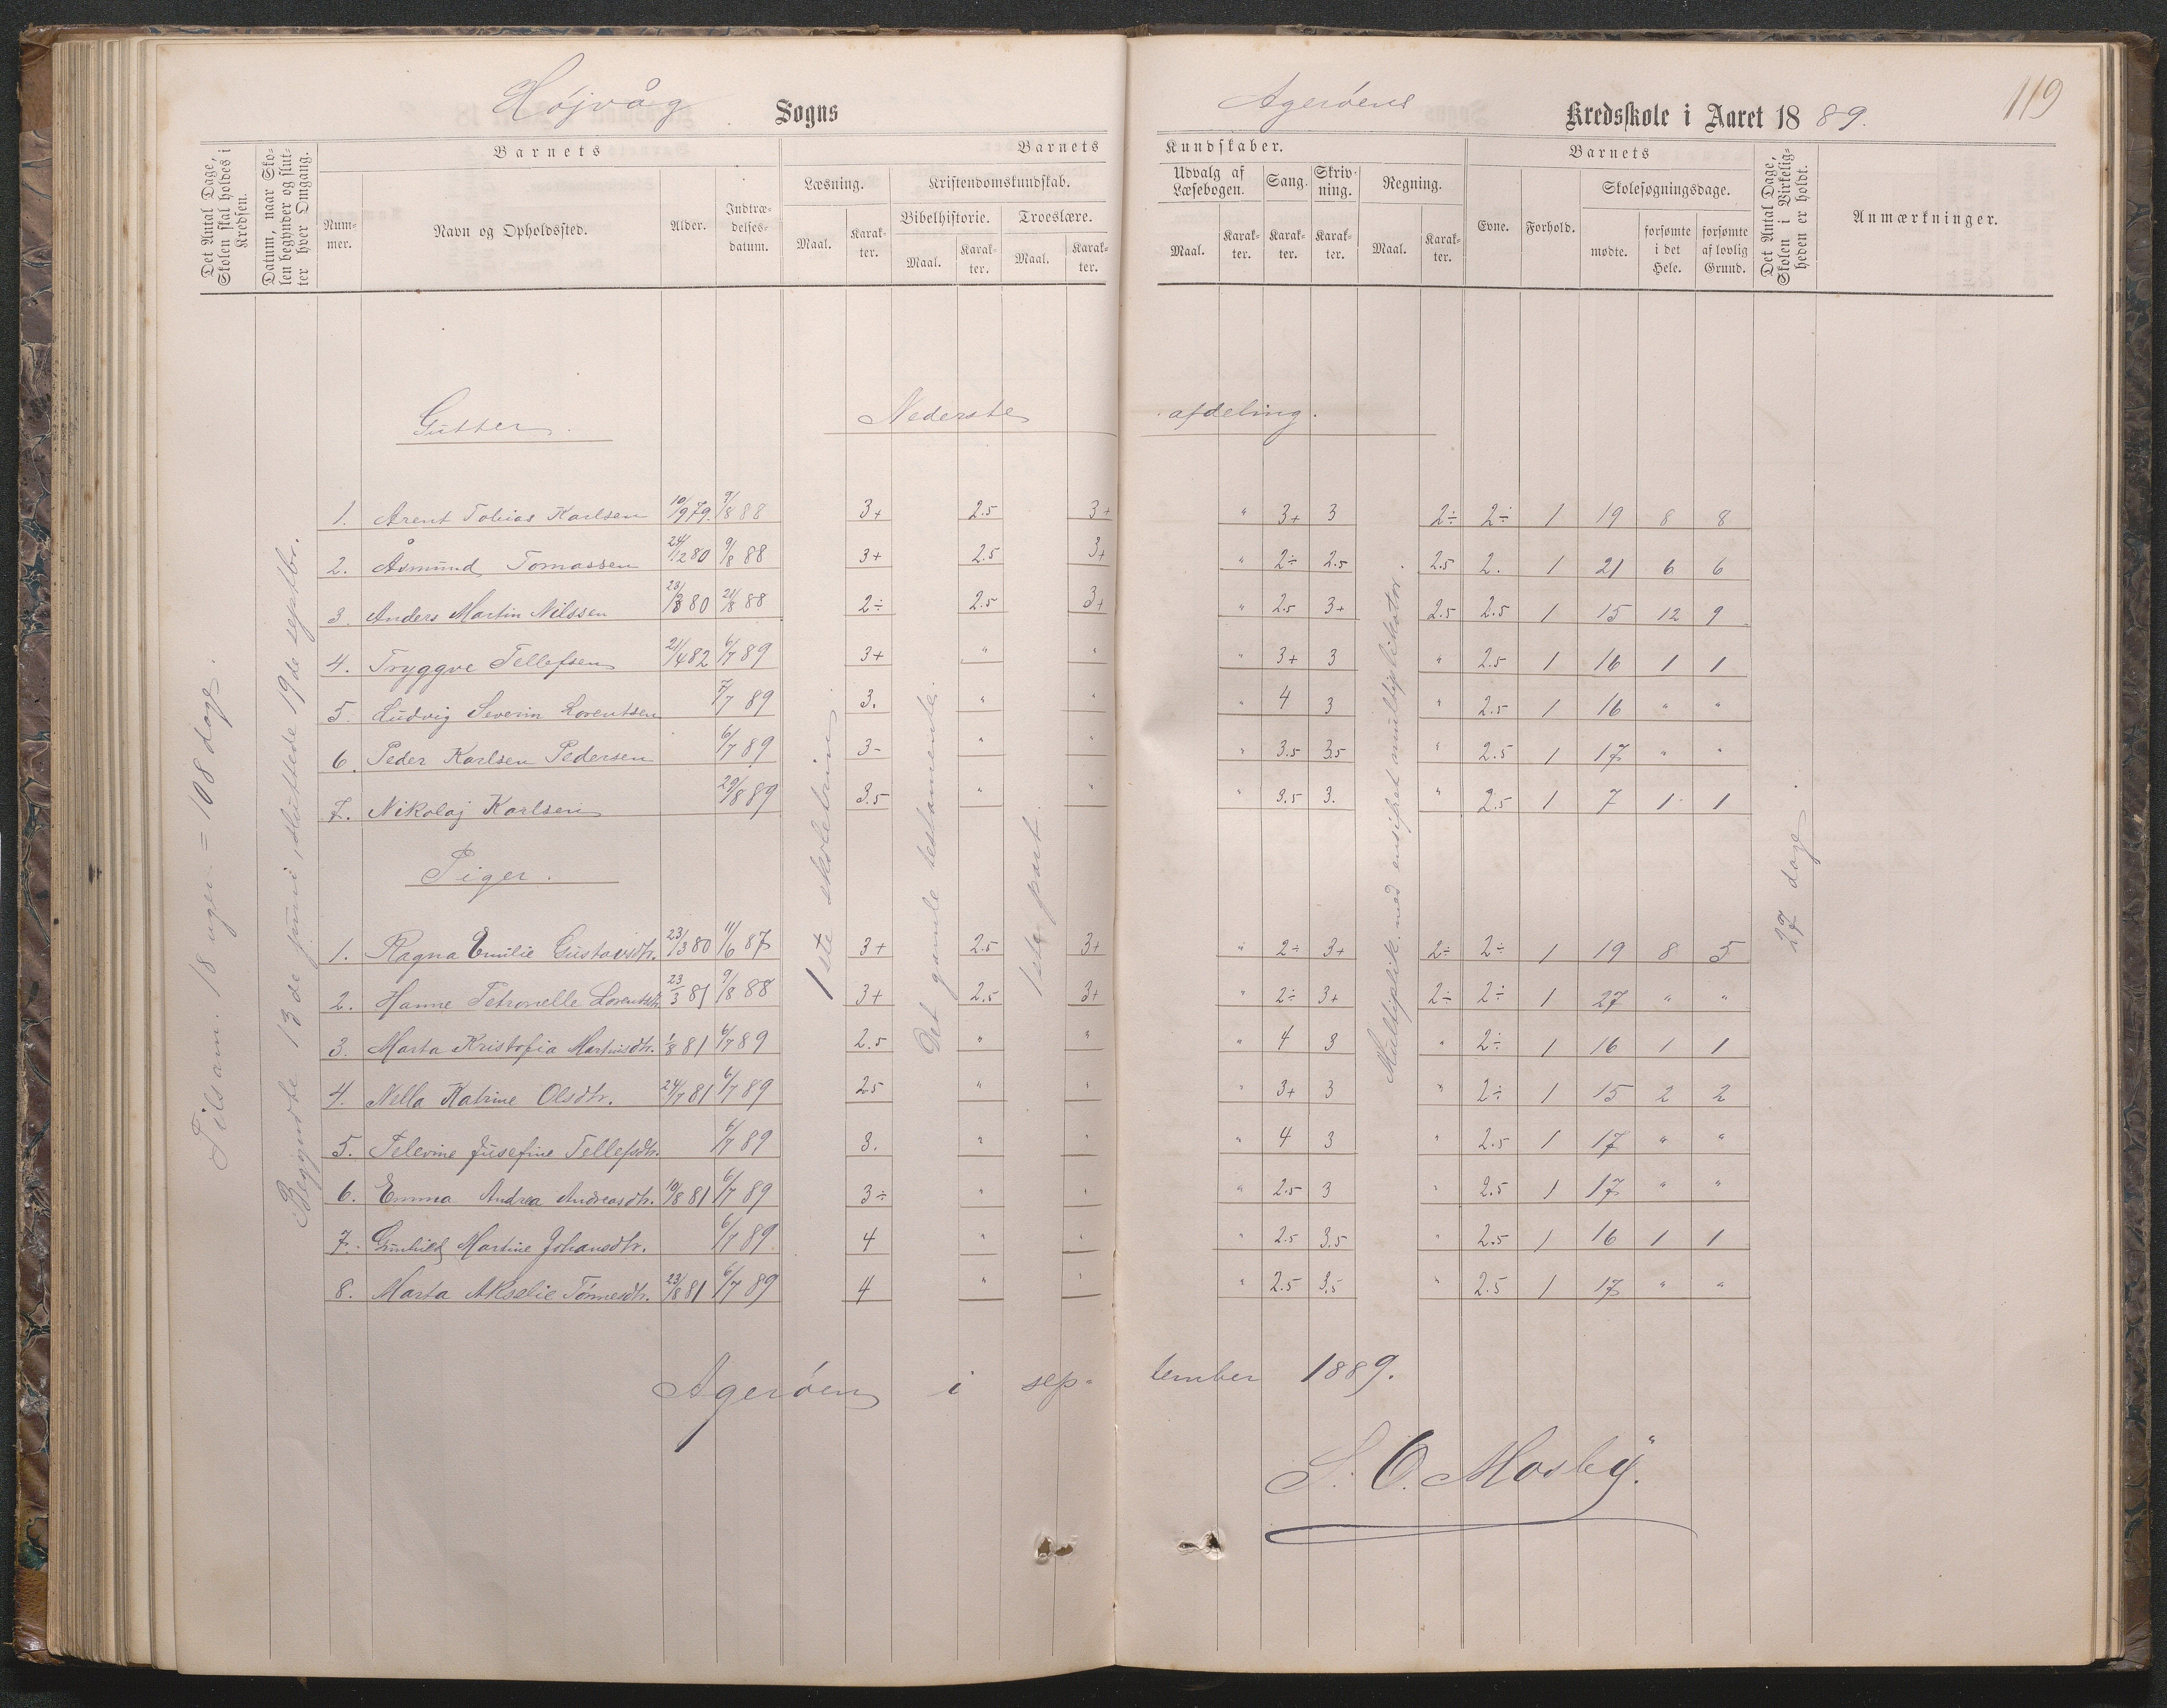 Højvåg Sogns Agerøens Kredsskole i Aaret 1889. 119
Det Antal Dage, Skolen skal holdes i Kredsen.
Datum, naar Skolen begynder og slutter hver Omgang.
Barnets
Nummer.
Navn og Opholdssted.
Alder.
Indtrædelsesdatum.
Barnets Kundskaber.
Læsning.
Maal. Karakter.
Kristendomskundskab.
Bibelhistorie.
Maal. Karakter.
Troeslære.
Maal. Karakter.
Udvalg af Læsebogen.
Maal. Karakter.
Sang.
Karakter.
Skrivning.
Karakter.
Regning.
Maal. Karakter.
Barnets
Evne. Forhold.
Skolesøgningsdage.
mødte. forsømte i det Hele. forsømte af lovlig Grund.
Det Antal Dage, Skolen i Virkeligheden er holdt.
Anmærkninger.
Tilsam. 18 uger = 108 dage.
Begyndte 13de juni, sluttede 19de septbr.
Gutter. Nederste afdeling.
1. Arent Tobias Karlsen 10/9 79. 9/8 88 3+ 2.5 3+ " 3+ 3 2÷ 2÷ 1 19 8 8
2. Åsmund Tomassen 24/12 80 9/8 88 3+ 2.5 3+ " 2÷ 2.5 2.5 2. 1 21 6 6
3. Anders Martin Nilssen 23/8 80 21/8 88 2÷ 2.5 3+ " 2.5 3+ 2.5 2.5 1 15 12 9
4. Tryggve Tellefsen 21/4 82 6/7 89 3+ " " " 3+ 3 " 2.5 1 16 1 1
5. Ludvig Severin Lorentsen 7/7 89 3. " " " 4 3 " 2.5 1 16 " "
6. Peder Karlsen Pedersen 6/7 89 3- " " " 3.5 3.5 " 2.5 1 17 " "
7. Nikolaj Karlsen 29/8 89 3.5 " " " 3.5 3. " 2.5 1 7 1 1
1ste skoletrin.
Det gamle testamente.
1ste part.
Multiplik. med ensifret multiplikator.
27 dage.
Piger.
1. Ragna Emilie Gustavsdtr. 23/3 80 11/6 87 3+ 2.5 3+ " 2÷ 3+ 2÷ 2÷ 1 19 8 5
2. Hanne Petronelle Lorentsdtr. 23/3 81 9/8 88 3+ 2.5 3+ " 2÷ 3+ 2÷ 2÷ 1 27 " "
3. Marta Kristofia Martinsdtr. 1/8 81 6/7 89 2.5 " " " 4 3 " 2÷ 1 16 1 1
4. Nella Katrine Olsdtr. 24/7 81 6/7 89 2.5 " " " 3+ 3 " 2÷ 1 15 2 2
5. Jusefine Tellefsdtr. 6/7 89 3. " " " 4 3 " 2.5 1 17 " "
6. Emma Andrea Andreasdtr. 19/8 81 6/7 89 3÷ " " " 2.5 3 " 2.5 1 17 " "
7. Gunhild Martine Johansdtr. 6/7 89 4 " " " 2.5 3.5 " 2.5 1 16 1 1
8. Marta Akselie Tønnesdtr. 23/8 81 6/7 89 4 " " " 2.5 3.5 " 2.5 1 17 " "
Agerøen i september 1889.
S. O. Mosby.